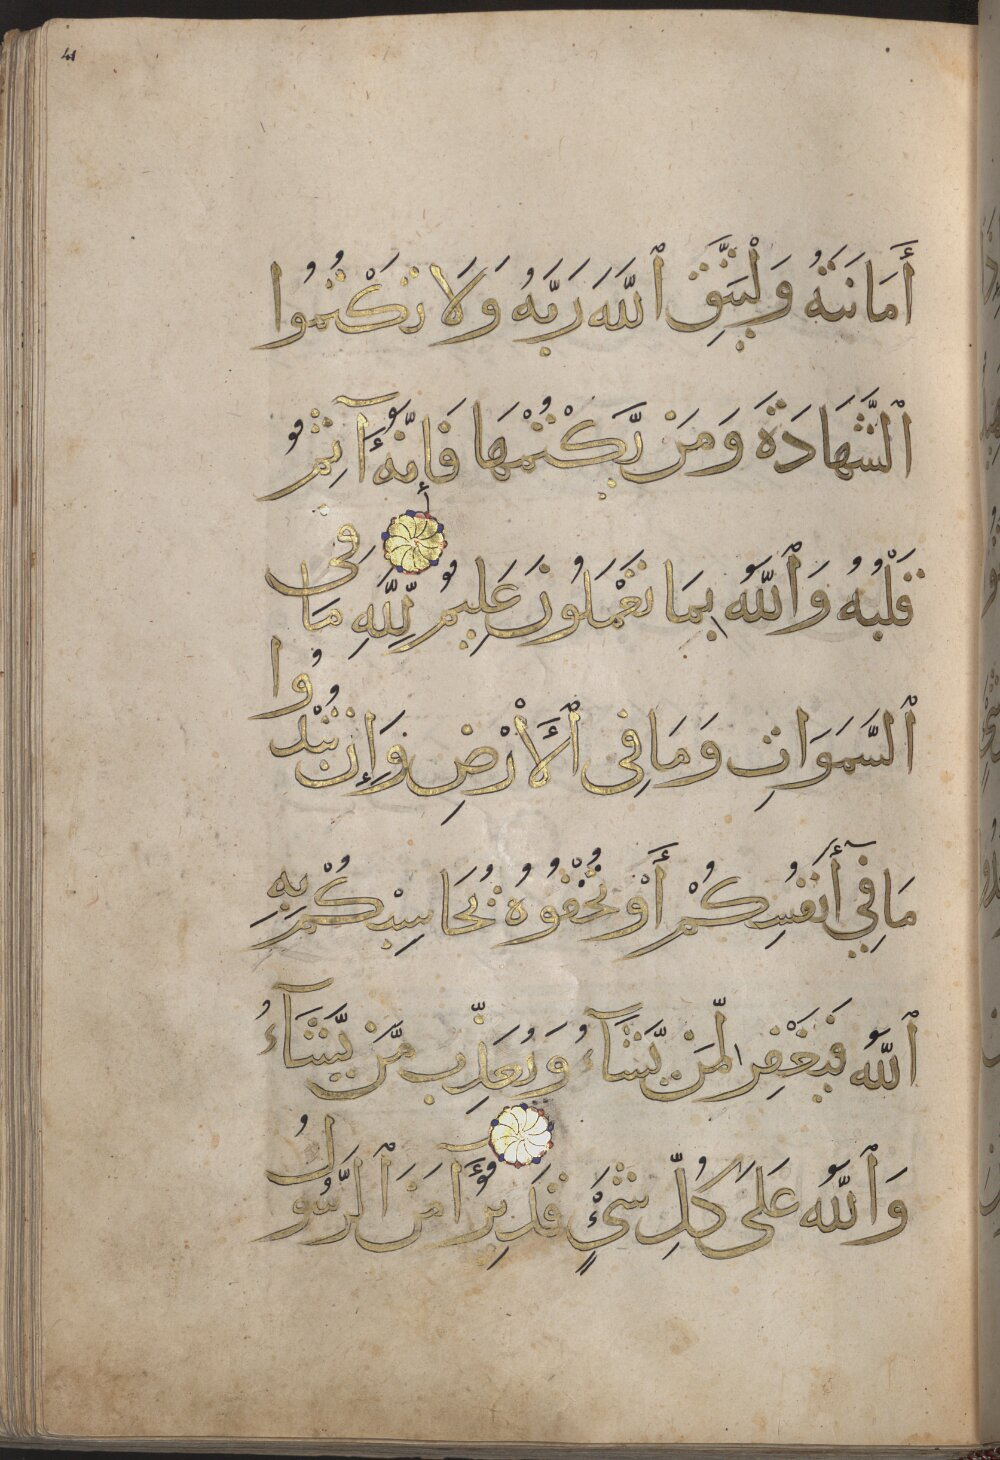 41
أَمَانَتَهُ وَلْيَتَّقِ ٱللَّهَ رَبَّهُ وَلَا تَكْتُمُوا
ٱلشَّهَادَةَ وَمَن يَّكْتُمْهَا فَإِنَّهُ آثِمٌ
قَلْبُهُ وَٱللَّهُ بِمَا تَعْمَلُونَ عَلِيمٌ لِلَّهِ مَا فِي
ٱلسَّمَوَاتِ وَمَا فِي ٱلْأَرْضِ وَإِن تُبْدُوا
مَا فِي أَنفُسِكُمْ أَوْ تُخْفُوهُ يُحَاسِبْكُم بِهِ
ٱللَّهُ فَيَغْفِر لِّمَن يَّشَآءُ وَيُعَذِّب مَّن يَّشَآءُ
وَٱللَّهُ عَلَى كُلِّ شَيْءٍ قَدِيرٌ آمَنَ ٱلرَّسُولُ